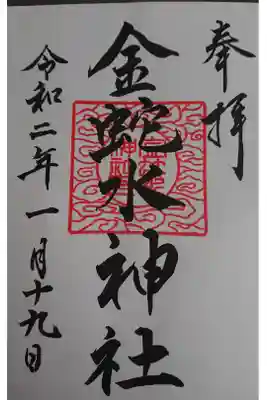 奉拝
金蛇水神社
令和二年一月十九日